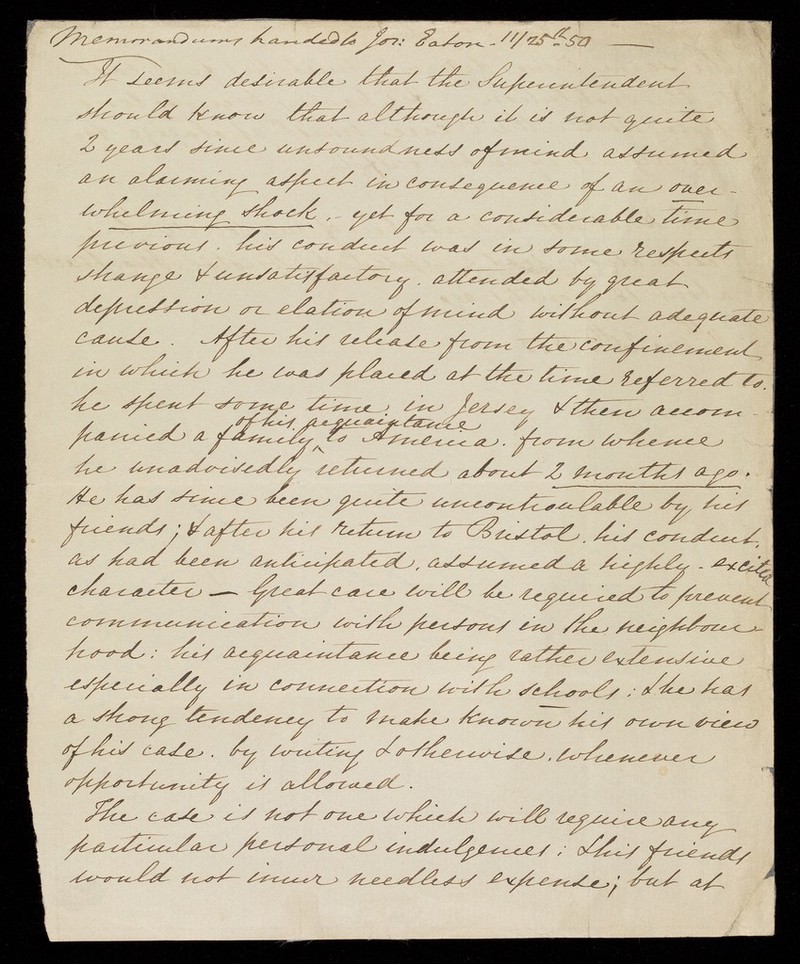 Memorandums handed to Jos: Eaton - 11/25th 50 —
It seems desirable that the Superintendent
should know that although it is not quite
2 years since unsoundness of mind assumed
an alarming aspect in consequence of an over-
whelming shock, - yet for a considerable time
previous, his conduct was in some respects
strange & unsatisfactory, attended by great
depression or elation of mind without adequate
cause. After his release from the confinement
in which he was placed at the time referred to,
he spent some time, in Jersey & then accom-
of his acquaintance
panied a family ^ to America, from whence
he unadvisedly returned about 2 months ago.
He has since been quite uncontroulable by his
friends; & after his return to Bristol, his conduct,
as had been anticipated, assumed a highly-excited
character — Great care will be required to prevent
communication with persons in the neighbour-
hood: his acquaintance being rather extensive
especially in connection with schools: & he has
a strong tendency to make known his own view
of his case, by writing & otherwise, whenever
opportunity is allowed.
The case is not one which will require any
particular personal indulgences; & his friends
would not incur needless expense; but at